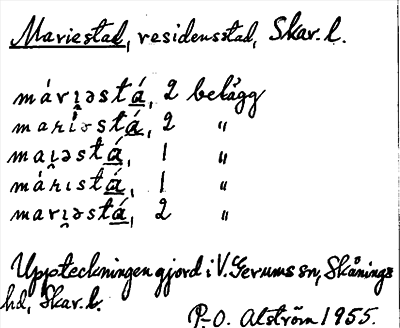 Mariestad, residensstad, Skar. l.
márı̯əstá, 2 belägg
mariəstá, 2 "
maı̯əstá, 1 "
márıstá, 1 "
marı̯əstá, 2 "
Uppteckningen gjord i V. Gerums sn, Skånings
hd, Skar. l.
P.-O. Alström 1955.